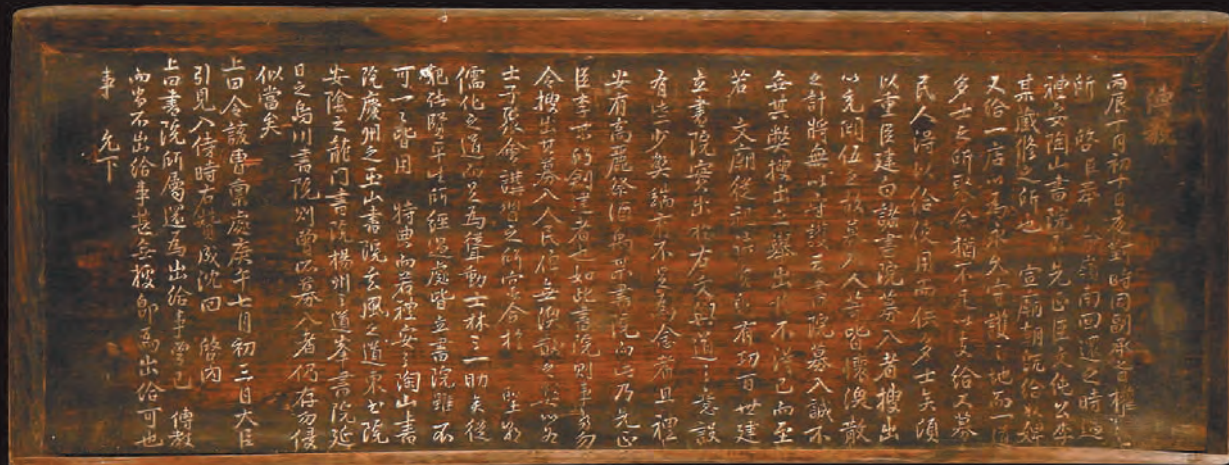 傳敎
丙辰十月初十日夜對時同副承旨權
所 啓臣奉 命嶺南回還之時過
禮安陶山書院卽先正臣文純公李
某藏修之所也 宣廟朝況給奴婢
又給一店以爲永久守護之地而一道
多士之所聚會猶不足以支給又募
民人得以給役用而供多士矣頃
以重臣建白諸書院募入者搜出
以充閑伍之役募入人等皆懷渙散
之計將無以守護云書院募入誠不
無其弊搜出之擧出於不得已而至
若 文廟從祀諸賢則有功百世建
立書院實出於右文興道之意設
有些少弊端有不足爲念者且禮
安有高麗祭酒禹倬書院而此乃先正
臣李某所創建者也如此書院則事勿
令搜出其募入人民俾無渙散之弊以爲
士子聚會講習之所實合於 聖朝
儒化之道而足爲聳動士林之一助矣從
祀諸賢平生所經過處皆立書院雖不
可一一皆用 特典而若禮安之陶山書
院慶州之玉山書院玄風之道東書院
安陰之龍門書院楊州之道峯書院延
日之烏川書院則曾已募入者仍存勿侵
似當矣
上曰令該曹稟處庚午七月初三日大臣
引見入侍時右贊成沈回 啓內
上曰書院所屬還爲出給事曾已 傳敎
而尙不出給事甚無據卽爲出給可也
事 允下